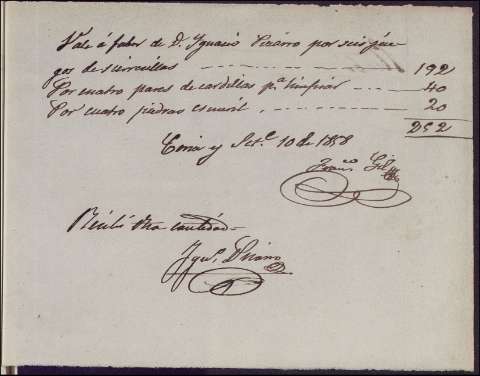 Vale á fabor de D. Ignacio Pizarro por seis jue
gos de sierecillas 192
Por cuatro pares de cardillas pª limpiar 40
Por cuatro piedras esmeril 20
252
y Set.e 10 de 1858
Franco Gil
Recibí dha cantidad=
Igno. Pizarro